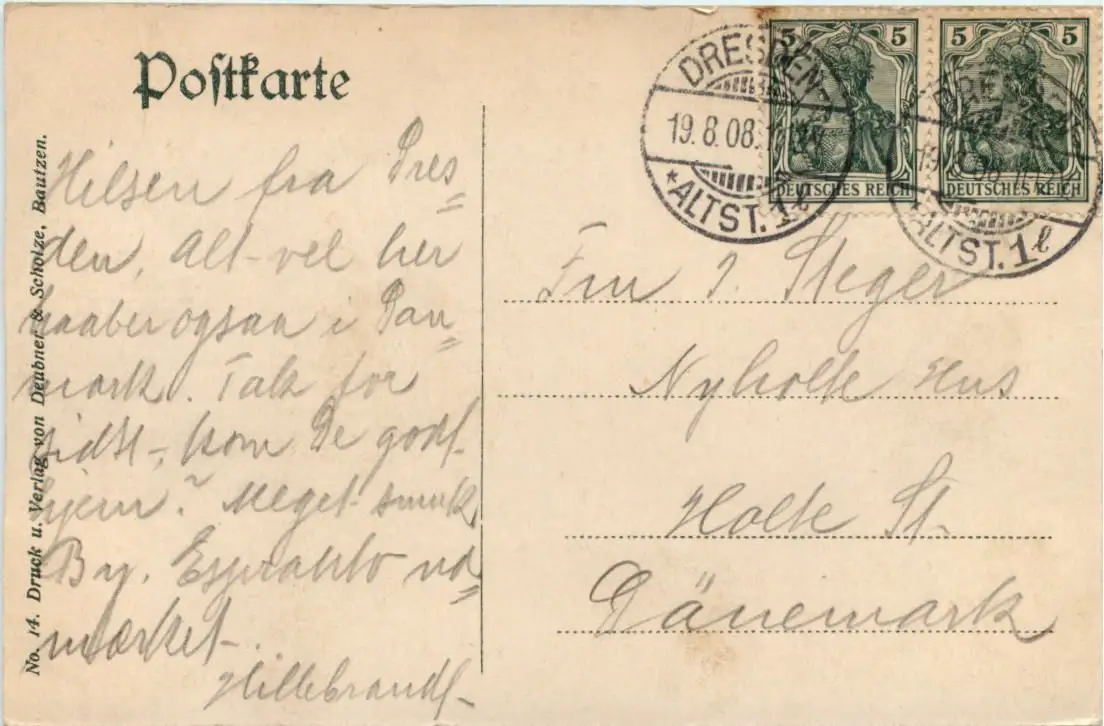 Postkarte
No. 14. Druck u. Verlag von Deubner & Scholze, Bautzen.
Hilsen fra Dres=
den, Alt vel her
haaber ogsaa i Dan=
mark. Tak for
sidst, kom De godt
hjem? Meget smuk
By. Esperanto ud=
mærket.
Hillebrandt
5 5
5 5
DEUTSCHES REICH
DEUTSCHES REICH
DRESDEN-
19.8.08.
*ALTST. 1 l
*ALTST. 1 l
Steger
Nyholte Hus
Holte St.
Dänemark